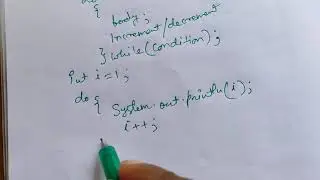 do
{
body;
Increment/decrement
} while(condition);
int i=1;
do {
System.out.println(i);
i++;